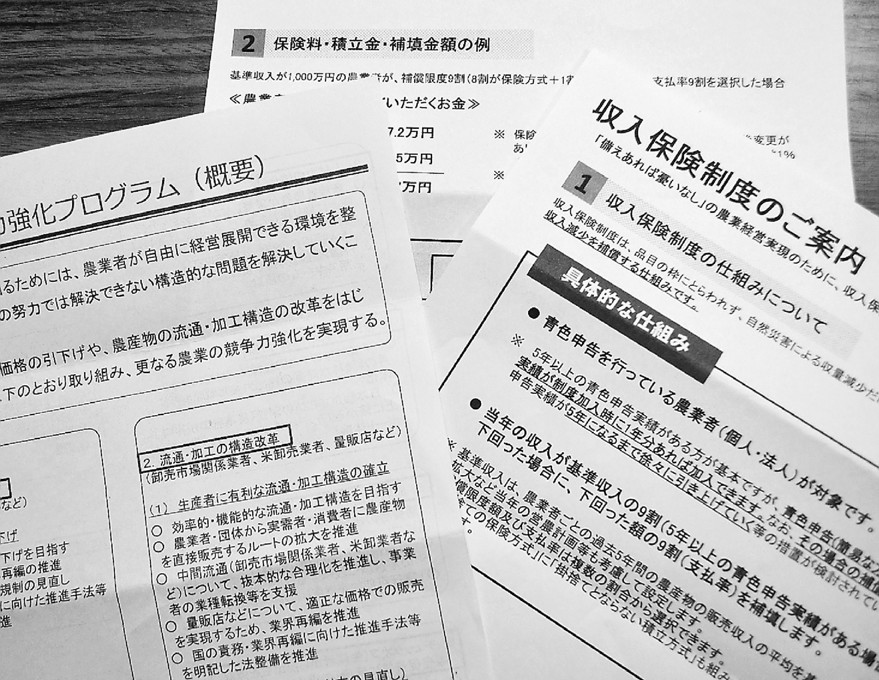 2 保険料・積立金・補填金額の例
基準収入が1,000万円の農業者が、補償限度9割(8割が保険方式+1 支払率9割を選択した場合
≪農業 いただくお金≫
7.2万円 ※ 保険 変更が
5万円 あ
万円 ※
収入保険制度のご案内
「備えあれば憂いなし」の農業経営実現のために、収入保
1 収入保険制度の仕組みについて
収入保険制度は、品目の枠にとらわれず、自然災害による収量減少だ
収入減少を補償する仕組みです。
具体的な仕組み
● 青色申告を行っている農業者(個人・法人)が対象です。
※ 5年以上の青色申告実績がある方が基本ですが、青色申告(簡易な
実績が制度加入時に1年分あれば加入できます。なお、その場合の補償
申告実績が5年になるまで徐々に引き上げていく等の措置が検討されてい
● 当年の収入が基準収入の9割(5年以上の青色申告実績がある場合
下回った場合に、下回った額の9割(支払率)を補填します。
※ 基準収入は、農業者ごとの過去5年間の農産物の販売収入の平均を基
拡大など当年の営農計画等も考慮して設定します。
償限度額及び支払率は複数の割合から選択できます。
捨ての保険方式」に「掛捨てとならない積立方式」も組み
す。
力強化プログラム(概要)
るためには、農業者が自由に経営展開できる環境を整
の努力では解決できない構造的な問題を解決していくこ
価格の引下げや、農産物の流通・加工構造の改革をはじ
下のとおり取り組み、更なる農業の競争力強化を実現する。
など)
下げ
下げを目指す
再編の推進
規制の見直し
に向けた推進手法等
進
2. 流通・加工の構造改革
(卸売市場関係業者、米卸売業者、量販店など)
(1) 生産者に有利な流通・加工構造の確立
○ 効率的・機能的な流通・加工構造を目指す
○ 農業者・団体から実需者・消費者に農産物
を直接販売するルートの拡大を推進
○ 中間流通(卸売市場関係業者、米卸業者な
ど)について、抜本的な合理化を推進し、事業
者の業種転換等を支援
○ 量販店などについて、適正な価格での販売
を実現するため、業界再編を推進
○ 国の責務・業界再編に向けた推進手法等
を明記した法整備を推進
の見直し)